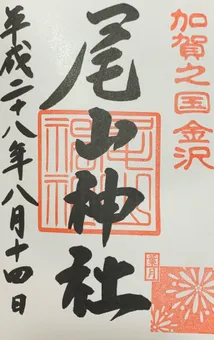 加賀之国金沢
尾山神社
平成二十八年八月十四日
尾山神社
葉月